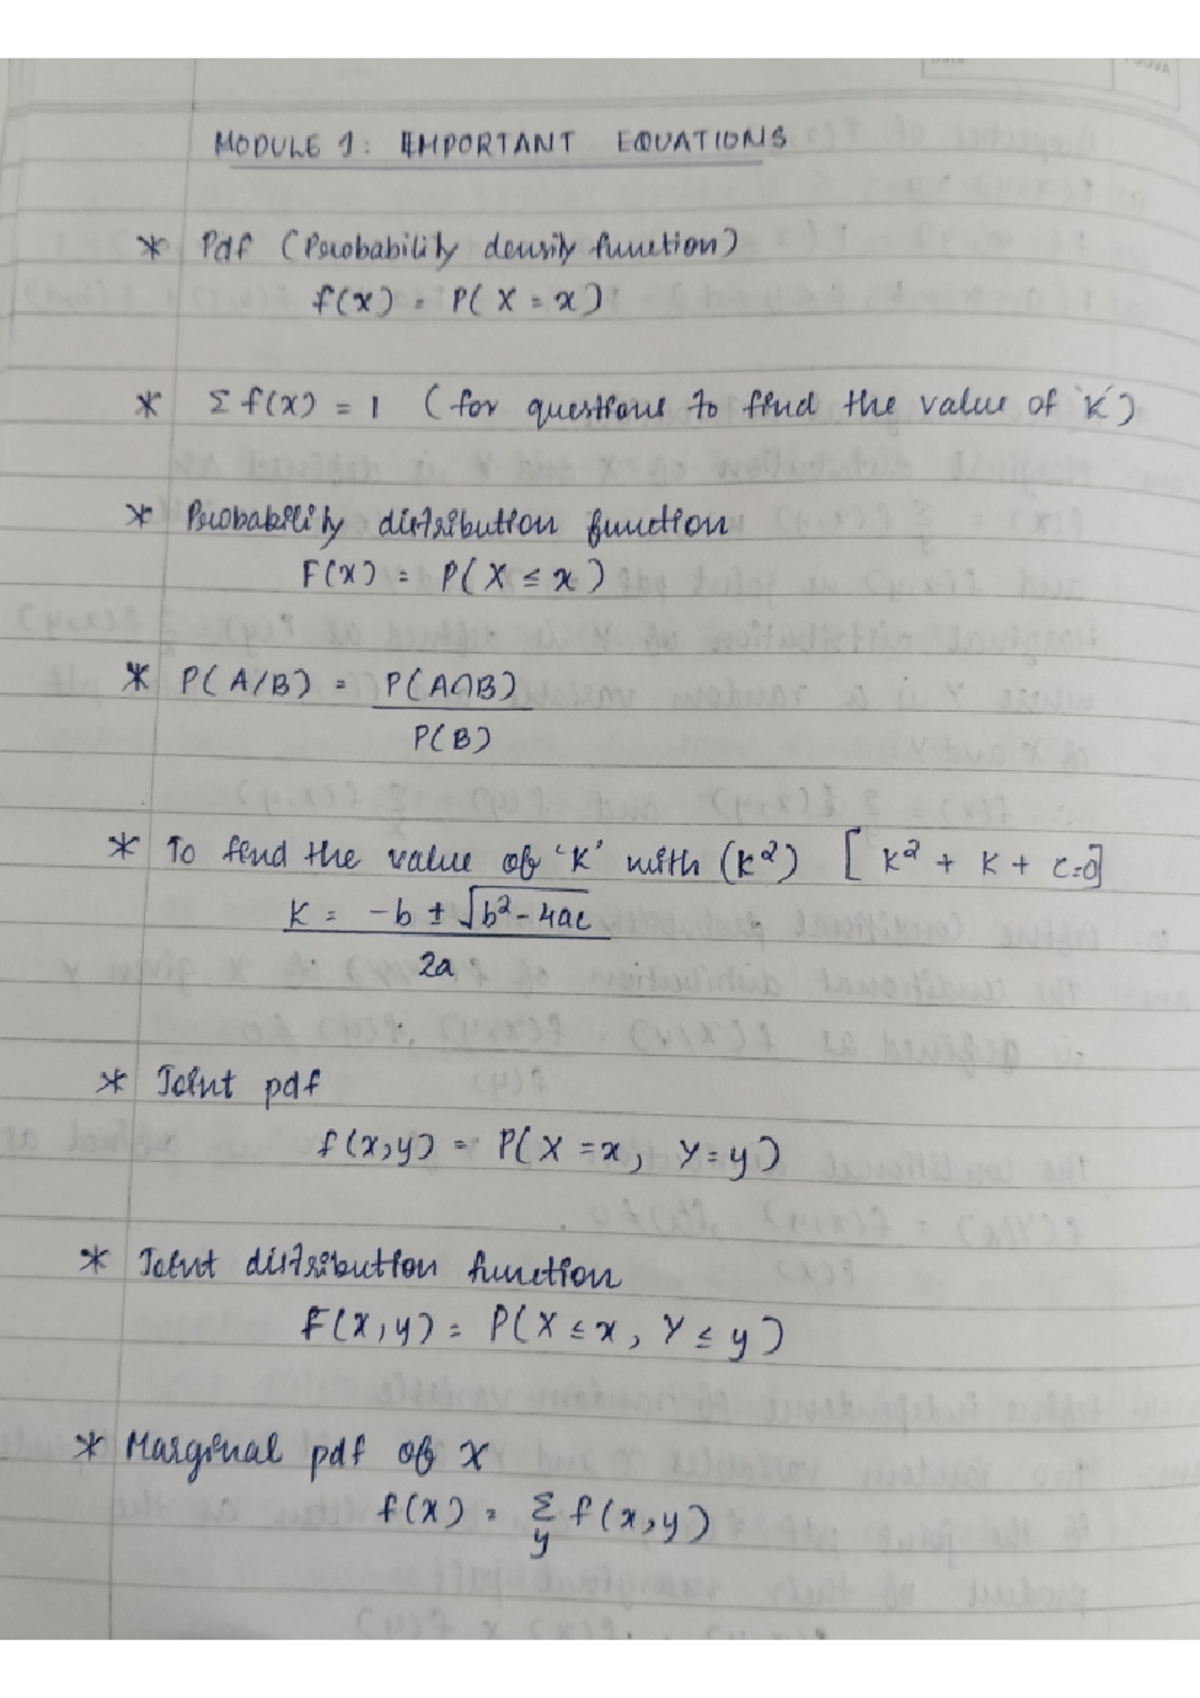 MODULE 1: IMPORTANT EQUATIONS
* Pdf (Probability density function)
f(x) = P(X = x)
* Σ f(x) = 1 (for questions to find the value of 'K')
* Probability distribution function
F(x) = P(X ≤ x)
* P(A/B) = P(A∩B)
P(B)
* To find the value of 'K' with (k²) [k² + k + c=0]
K = -b ± √b² - 4ac
2a
* Joint pdf
f(x,y) = P(X = x, Y = y)
* Joint distribution function
F(x,y) = P(X ≤ x, Y ≤ y)
* Marginal pdf of X
f(x) = Σ f(x,y)
y